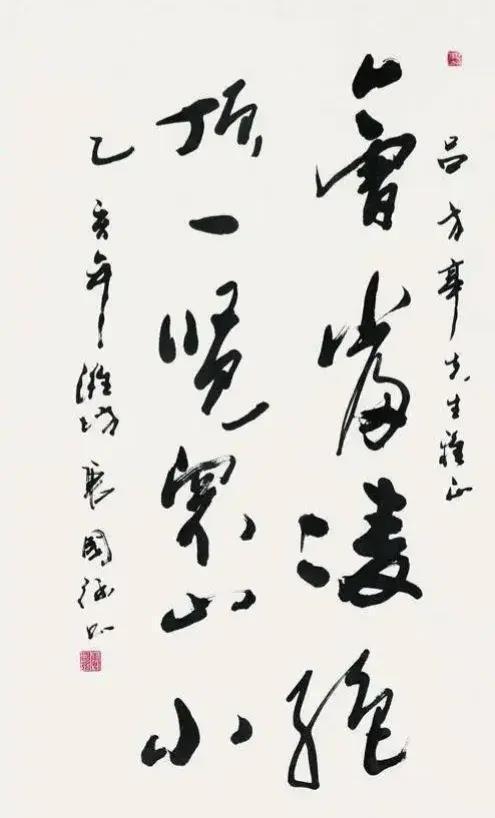 吕方亭先生雅正
會當凌絶
頂一覽眾山小
乙亥年潍坊
國